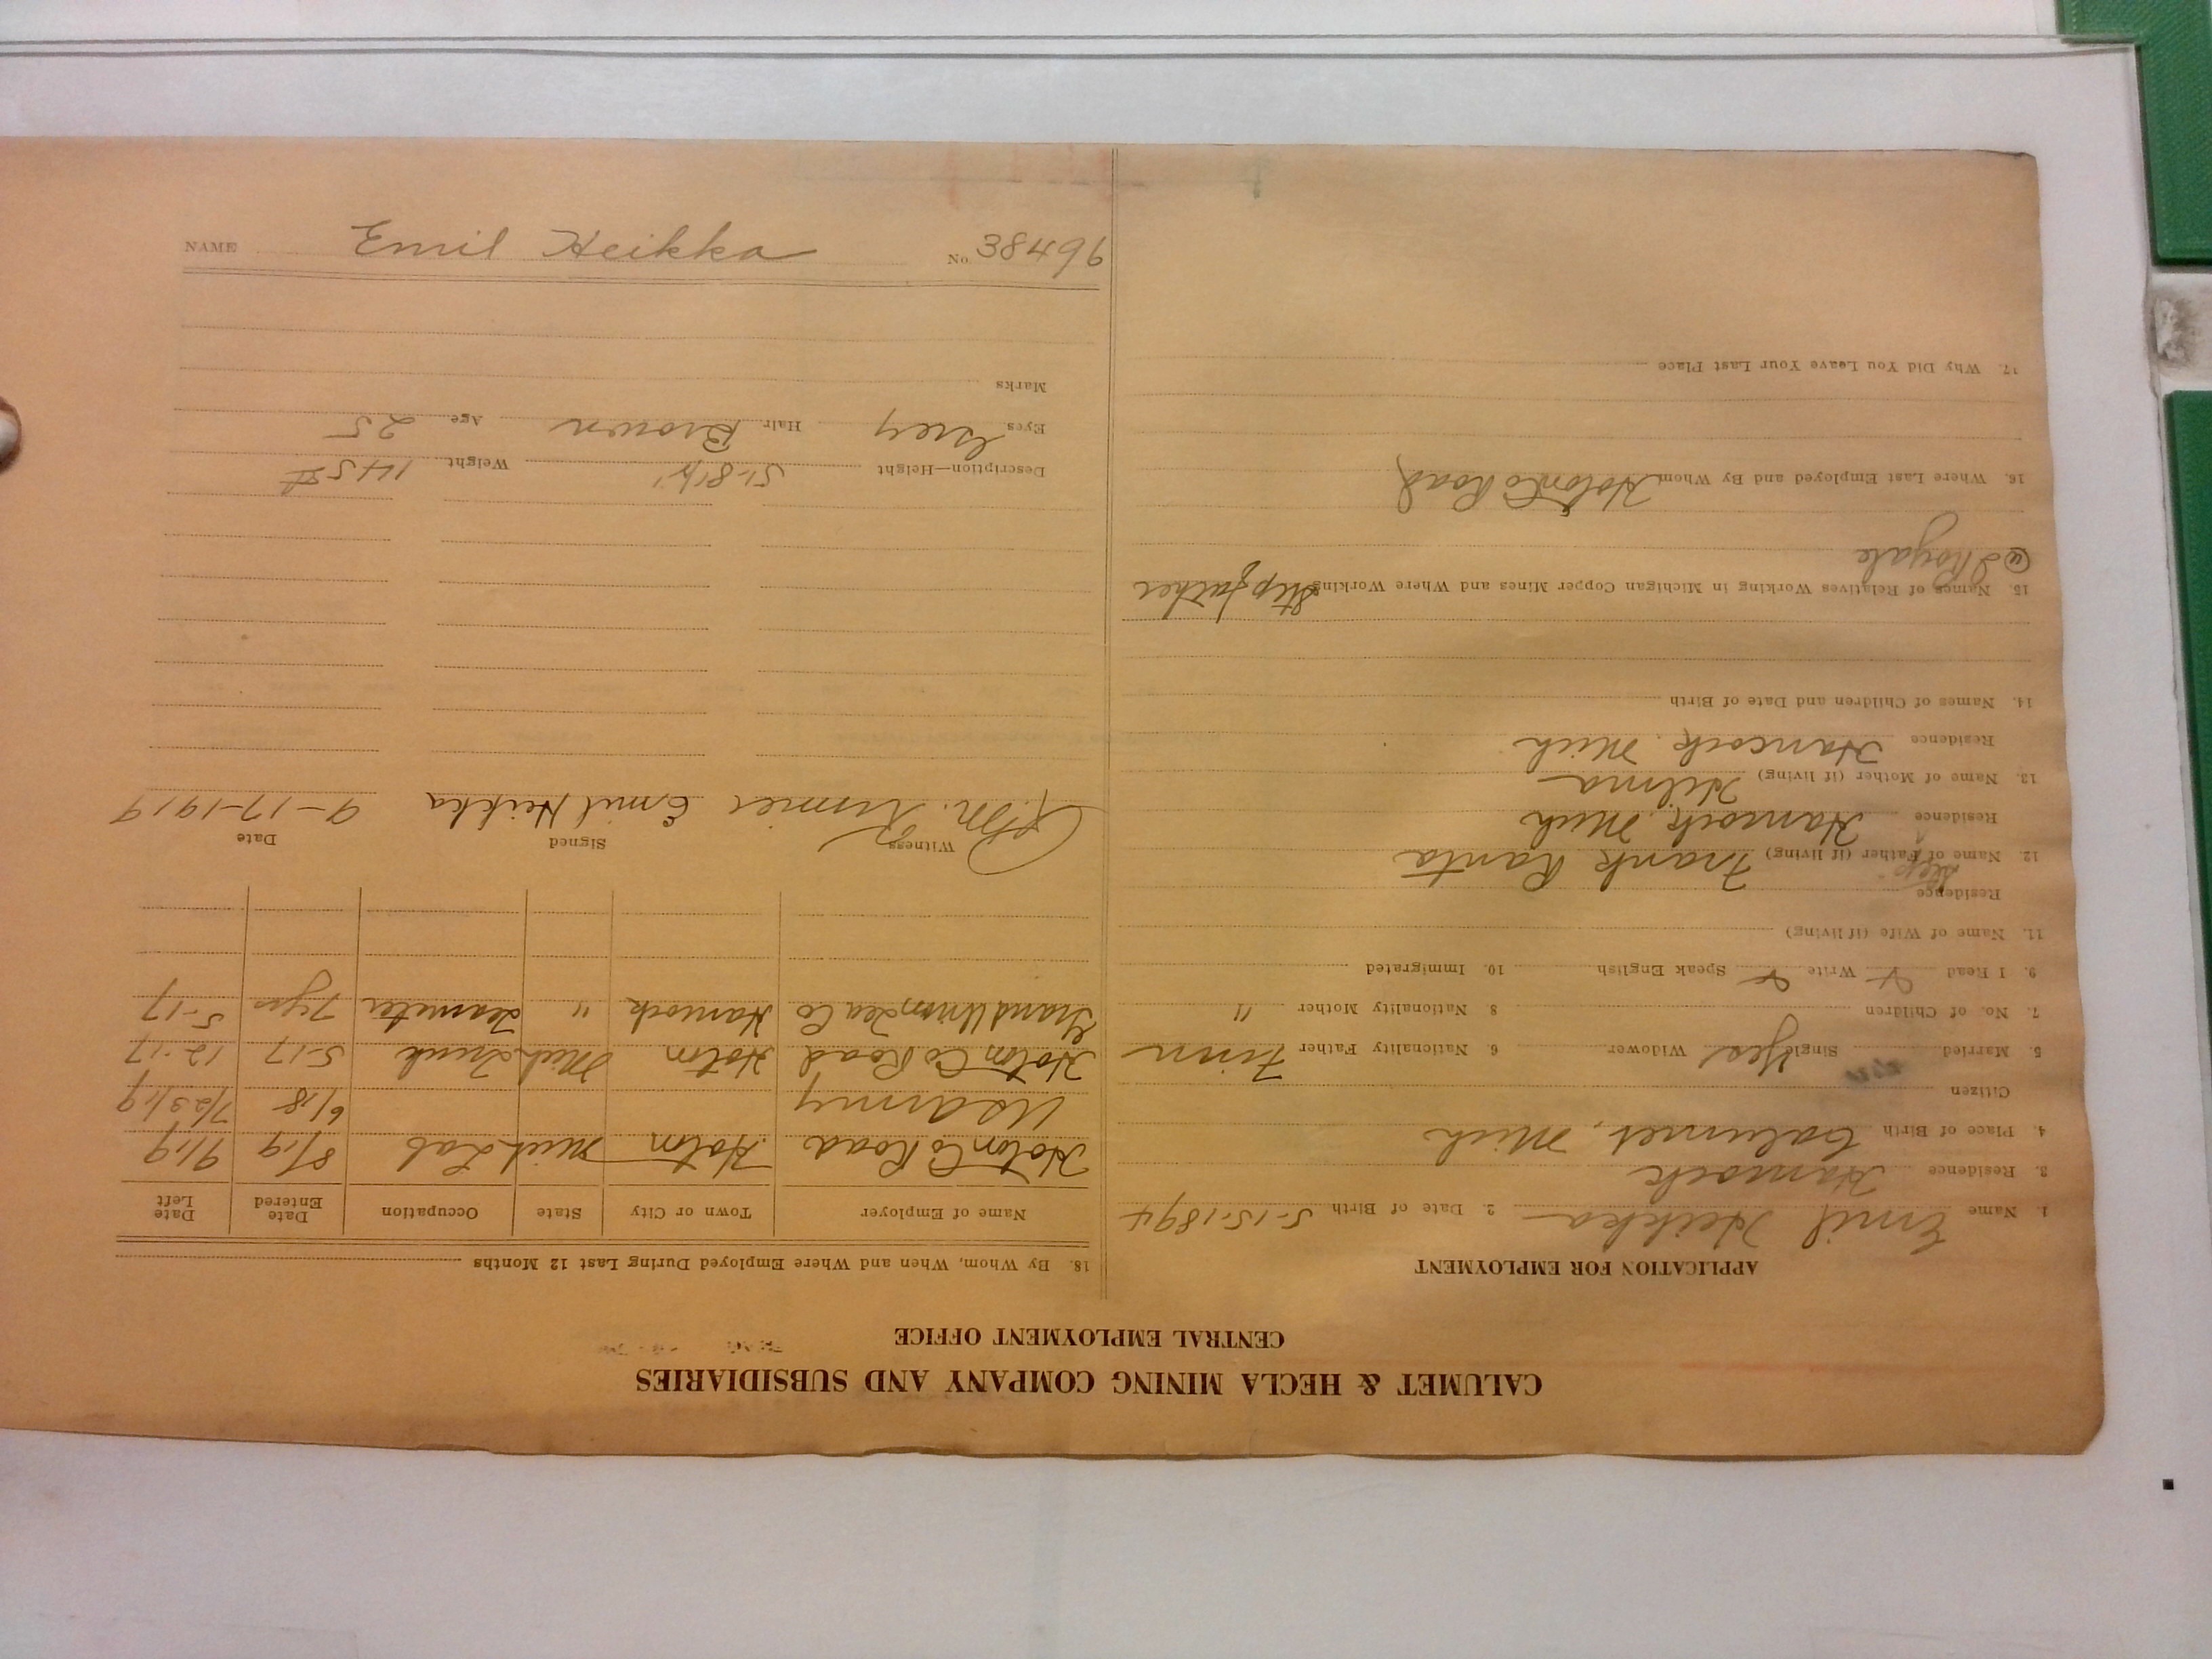 CALUMET & HECLA MINING COMPANY AND SUBSIDIARIES
CENTRAL EMPLOYMENT OFFICE
APPLICATION FOR EMPLOYMENT
1. Name Emil Heikka 2. Date of Birth 5-15-1894
3. Residence Hancock
4. Place of Birth Calumet, Mich
Citizen
5. Married Single Yes Widower 6. Nationality Father Finn
7. No. of Children 8 Nationality Mother "
9. I Read Write Speak English 10. Immigrated
11. Name of Wife (if living)
Residence
Step
12. Name of Father (if living) Frank Ranta
Residence Hancock Mich
13. Name of Mother (if living) Hilma
Residence Hancock Mich
14. Names of Children and Date of Birth
15. Names of Relatives Working in Michigan Copper Mines and Where Working Stepfather
@ I Royale
16. Where Last Employed and By Whom Hoton Co Road
17. Why Did You Leave Your Last Place
18. By Whom, When and Where Employed During Last 12 Months
Name of Employer Town or City State Occupation Date Entered Date Left
Hoton Co Road Hotn Mich Lab 8/19 9/19
US Army 6/18 7/23/19
Hoton Co Road Hotn Mich 5-17 12-17
Grand Union Tea Co Hancock " Teamster 7 yrs 5-17
Witness Signed Date
Emil Heikka 9-17-1919
Description—Height 5'-8½" Weight 145#
Eyes Grey Hair Brown Age 25
Marks
NAME Emil Heikka No. 38496